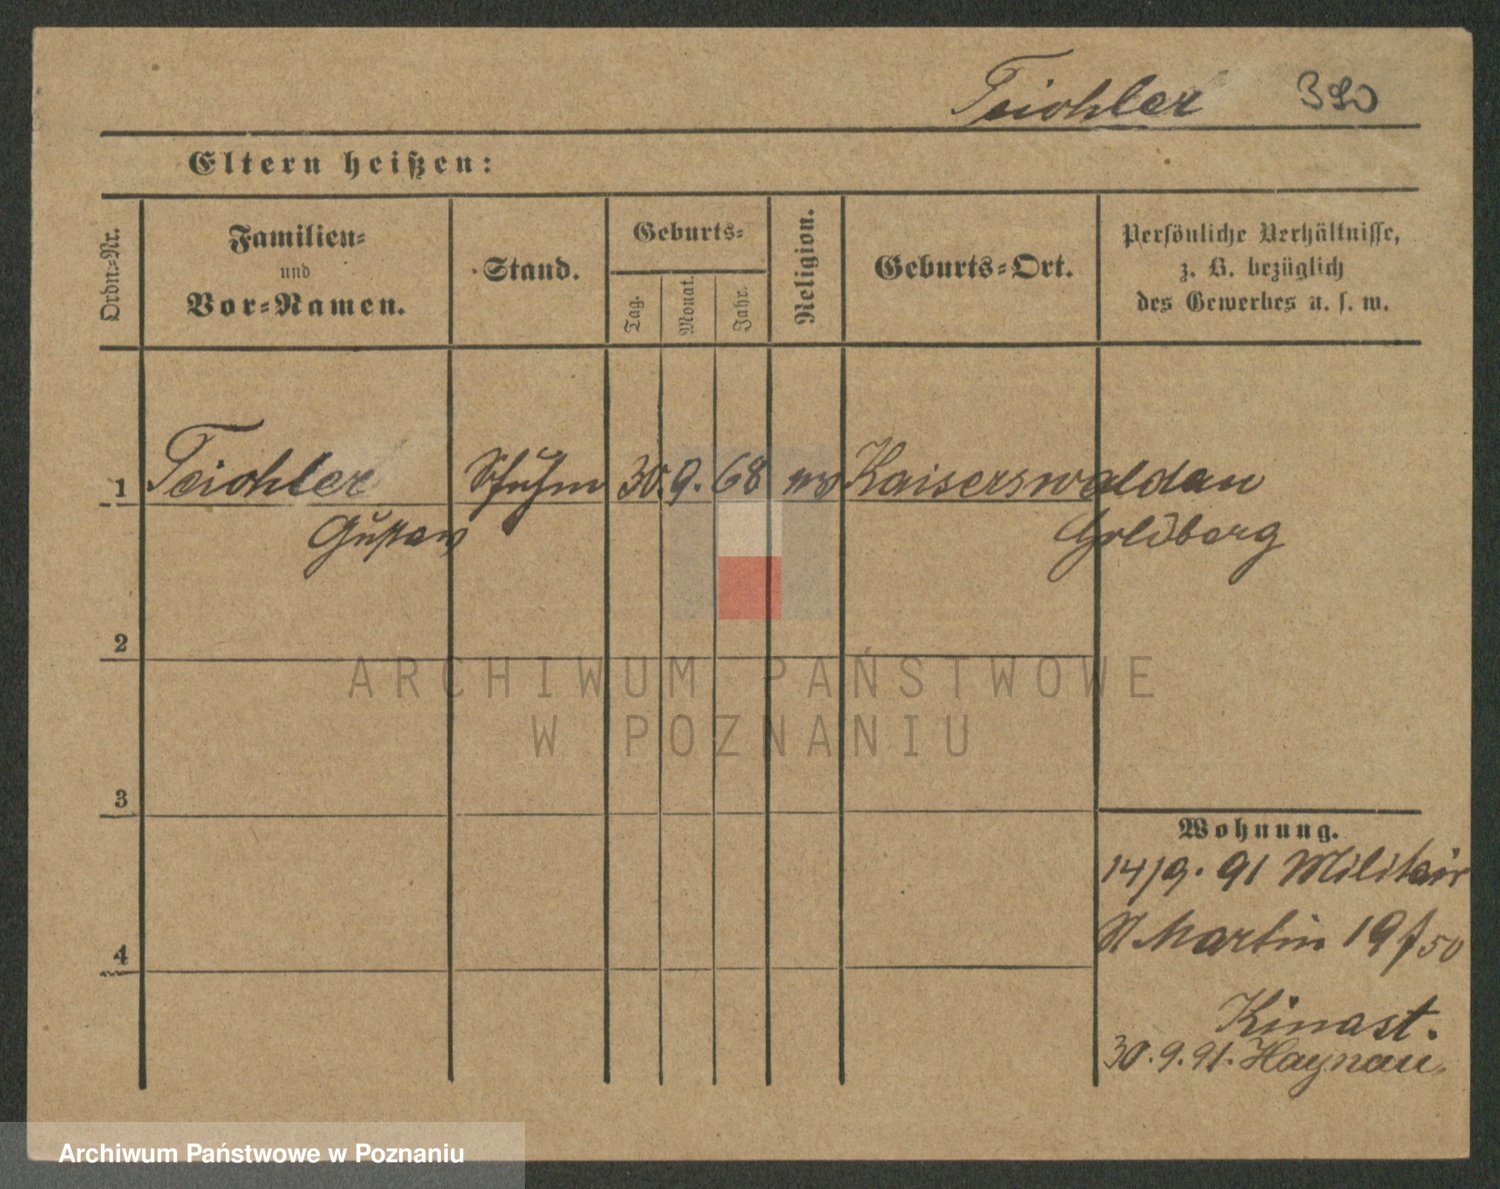 Teichler 390
Eltern heißen:
Ordn=Nr.
Familien=
und
Vor=Namen.
Stand.
Geburts=
Tag.
Monat.
Jahr.
Religion.
Geburts=Ort.
Persönliche Verhältnisse,
z. B. bezüglich
des Gewerbes u. s. w.
1 Teichler Schuhm 30. 9. 68 Kaiserswaldau
Gustav Goldberg
2
3
4
Wohnung.
14/9. 91 Militair
St Martin 19 f 50
Kinast.
30. 9. 91. Haynau.
ARCHIWUM PAŃSTWOWE
W POZNANIU
Archiwum Państwowe w Poznaniu